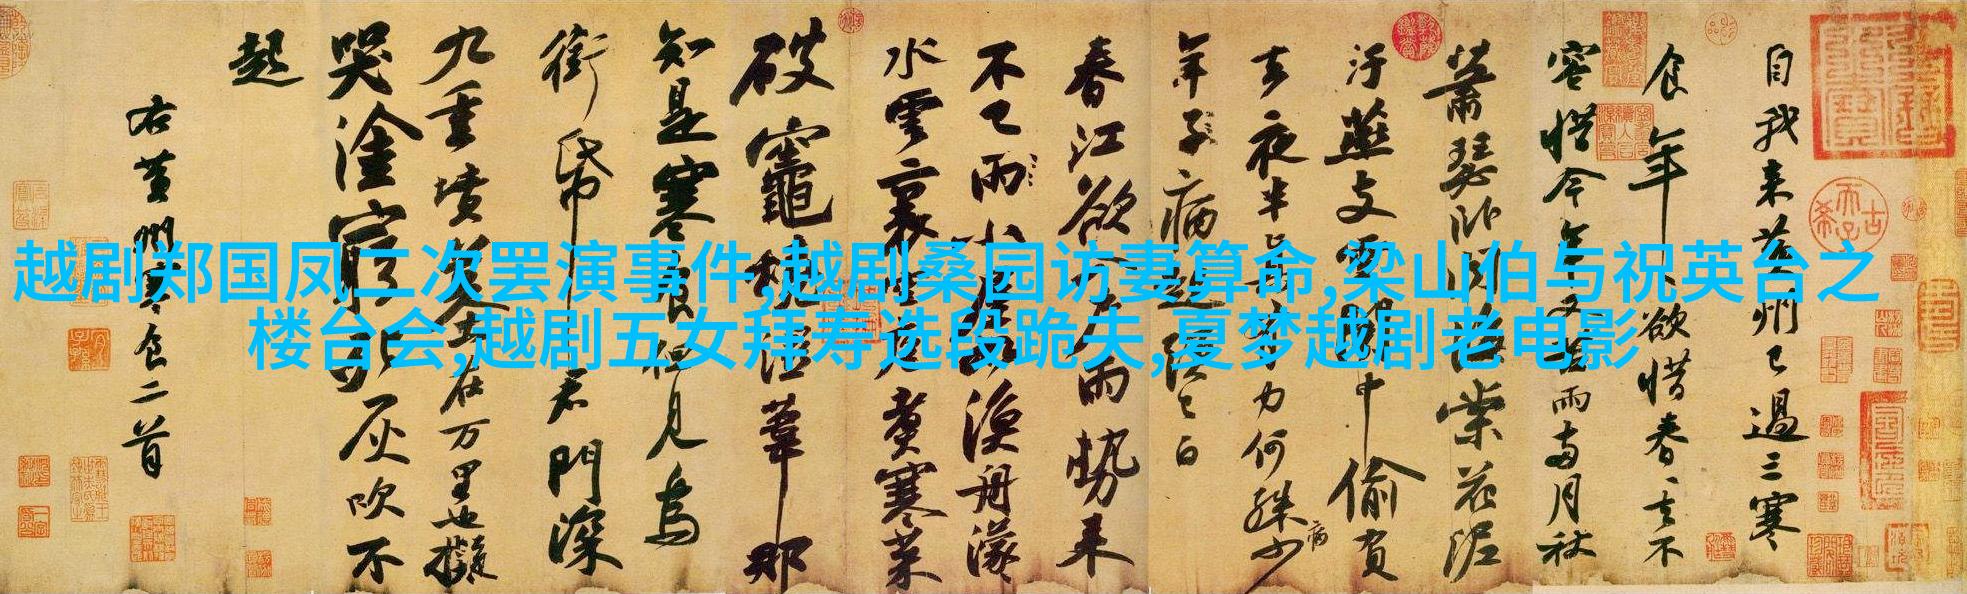 越剧郑国凤二次罢演事件,越剧桑园访妻算命,梁山伯与祝英台之
楼台会,越剧五女拜寿选段跪夫,夏梦越剧老电影
自我来黄州已過三寒
食年〻欲惜春〻去不
容惜今年又苦雨兩月秋
蕭瑟卧聞海棠花泥
汙燕支雪闇中偷負
去夜半真有力何殊少
病
年子病起頭已白
春江欲入户雨勢来
不已雨小屋如漁舟濛
水雲裏空庖煮寒菜
破竈燒濕葦那
知是寒食但見烏
銜帋君門深
九重墳墓在万里也擬
哭塗窮死灰吹不
起
右黄州寒食二首